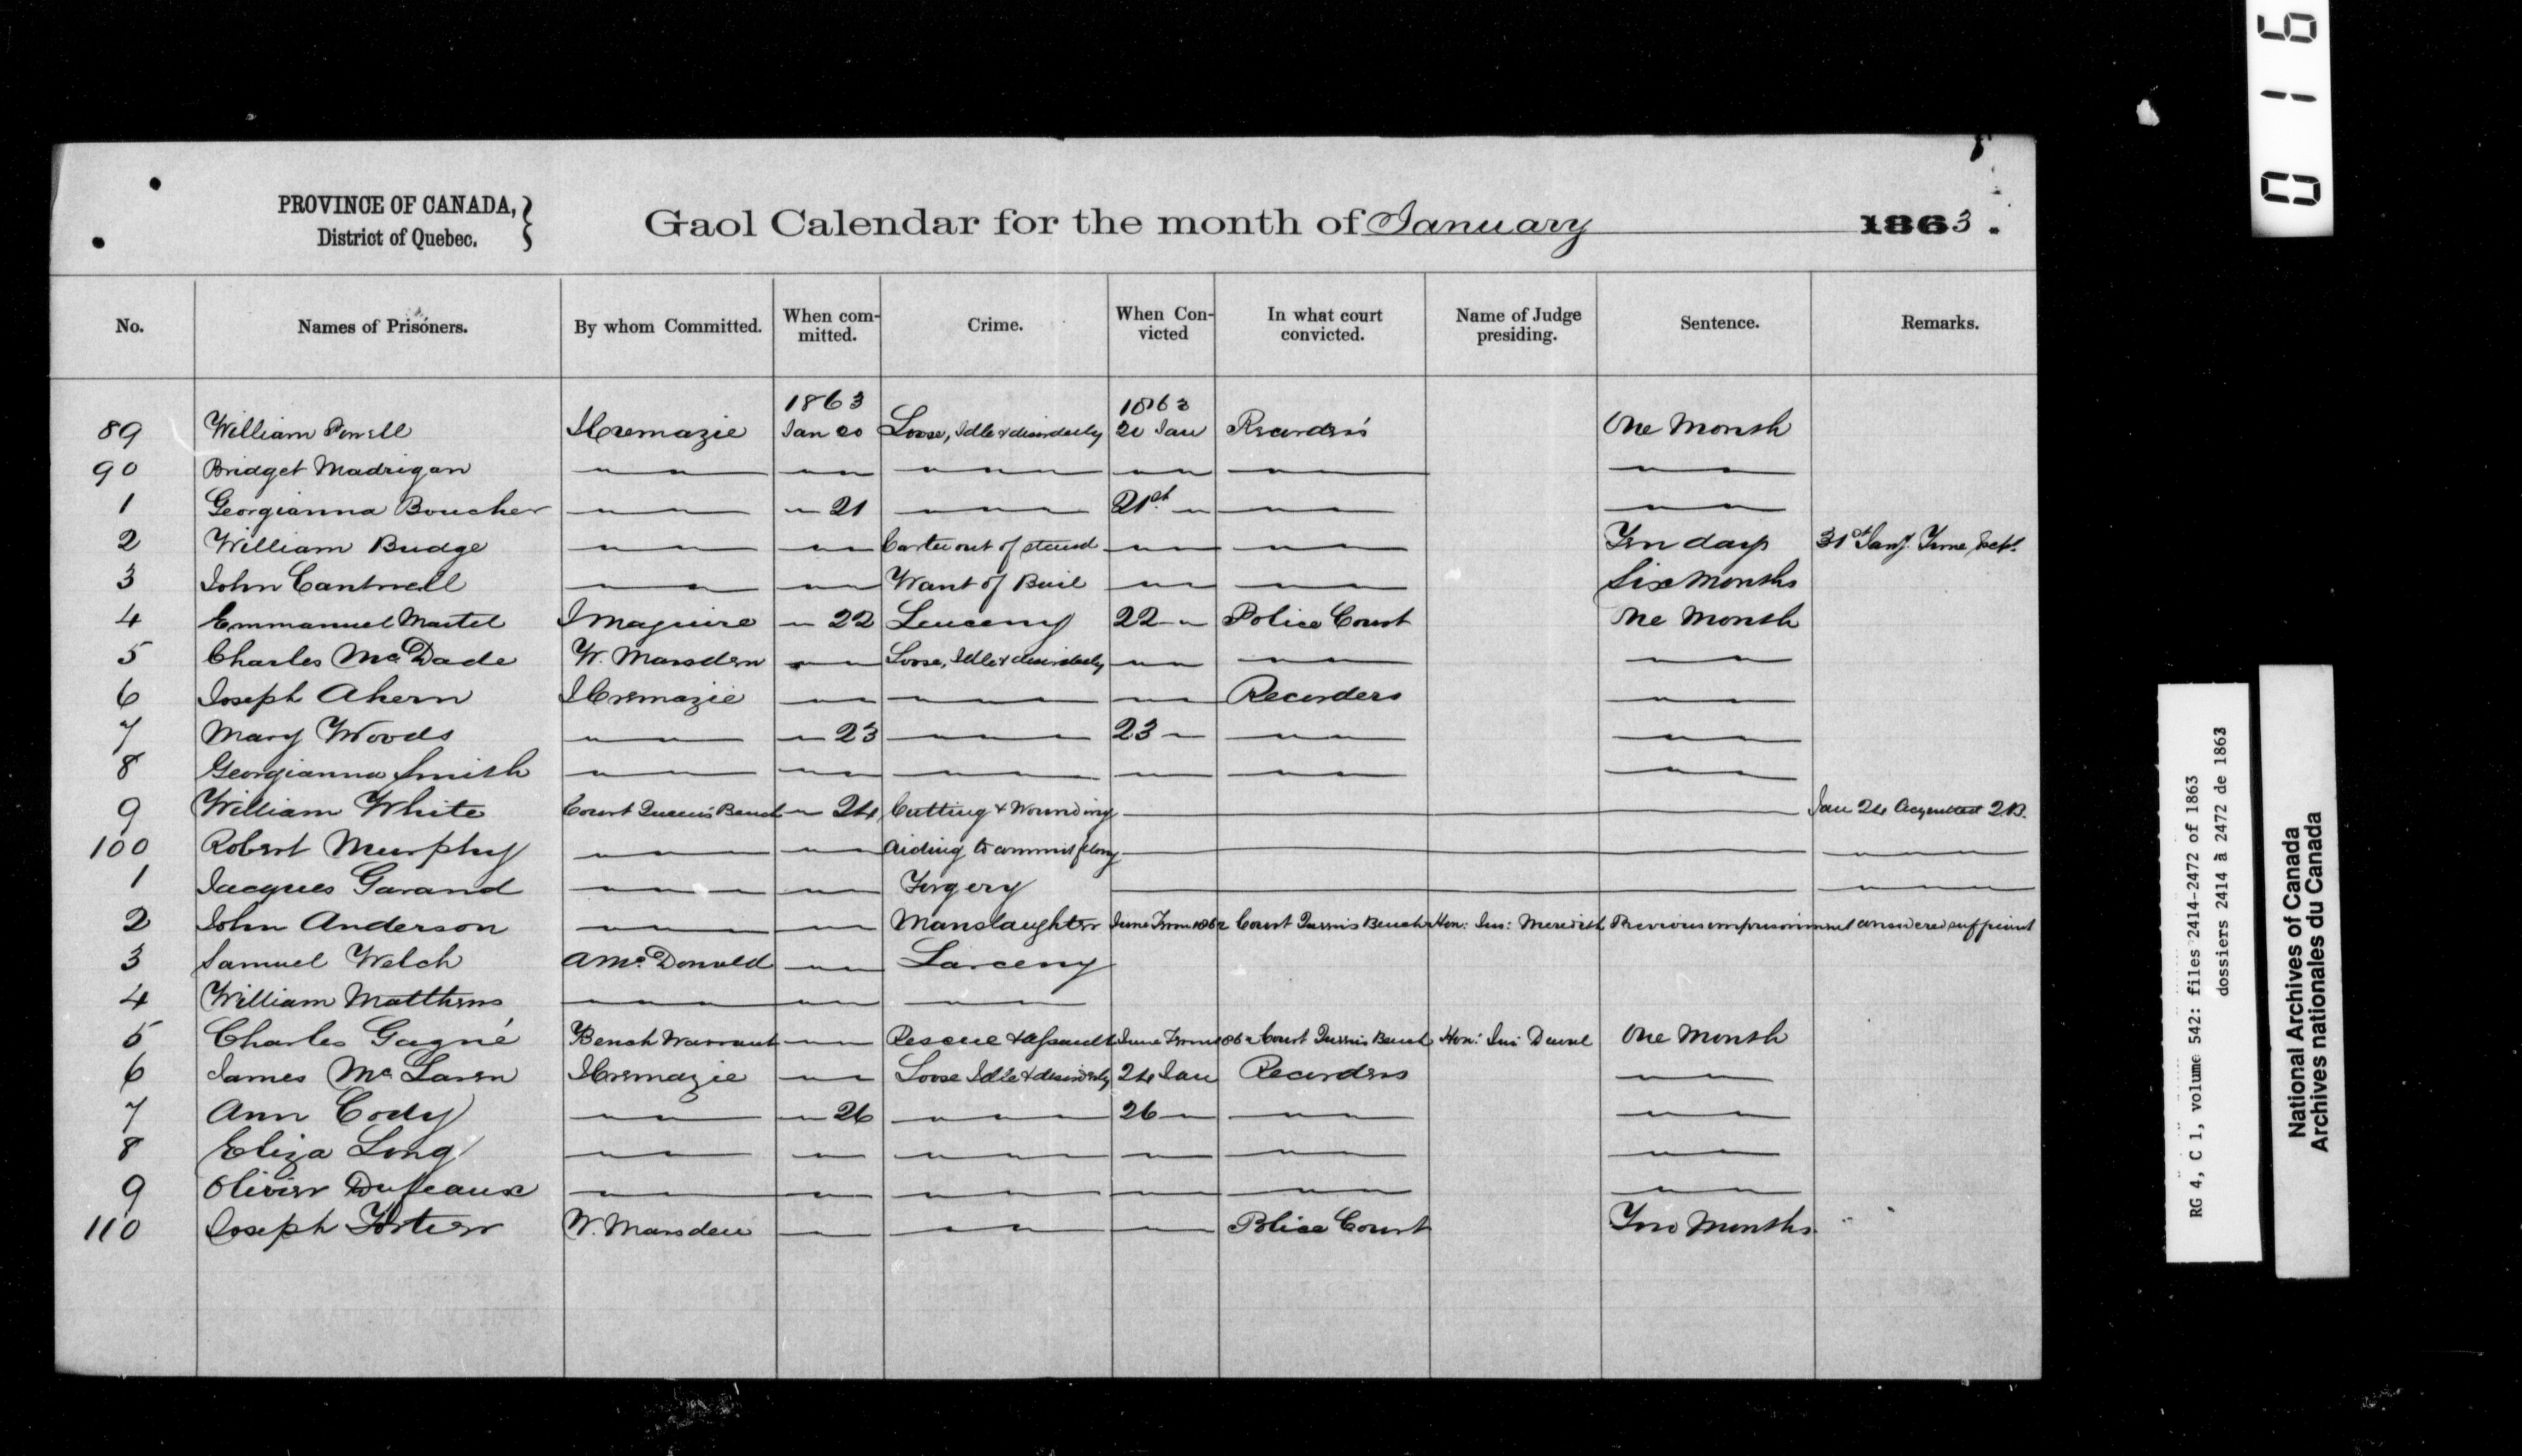 PROVINCE OF CANADA,
District of Quebec.
Gaol Calendar for the month of January 1863.
No. Names of Prisoners. By whom Committed. When committed. Crime. When Convicted In what court convicted. Name of Judge presiding. Sentence. Remarks.
1863 1863
89 William Powell J Cremazie Jan 20 Loose, Idle & disorderly 20 Jan Recorder's One Month
90 Bridget Madrigan — — — — — — — — — — — — —
1 Georgianna Boucher — — — 21 — — — 21st — — — — —
2 William Budge — — — — Carter out of stand — — — — Ten days 31st Jany. Time Expd.
3 John Cantwell — — — — Want of Bail — — — — Six Months
4 Emmanuel Martel J Maguire — 22 Larceny 22 — Police Court One Month
5 Charles McDade W. Marsden — — Loose, Idle & disorderly — — — — — —
6 Joseph Ahern J Cremazie — — — — — — — Recorders — —
7 Mary Woods — — — 23 — — — 23 — — — — —
8 Georgianna Smith — — — — — — — — — — — — —
9 William White Court Queen's Bench — 24 Cutting & Wounding — Jan 24 Acquitted Q.B.
100 Robert Murphy — — — — — Aiding to commit felony — — — —
1 Jacques Garand — — — — — Forgery — — — —
2 John Anderson — — — — — Manslaughter June Term 1862 Court Queen's Bench Hon: Jus: Meredith Previous imprisonment considered sufficient
3 Samuel Welch A McDonald — — Larceny
4 William Matthews — — — — — — — —
5 Charles Gagné Bench Warrant — — Rescue & Assault June Term 1862 Court Queen's Bench Hon: Jus: Duval One Month
6 James McLaren J Cremazie — — Loose Idle & disorderly 24 Jan Recorders — —
7 Ann Cody — — — 26 — — — 26 — — — — —
8 Eliza Long — — — — — — — — — — — —
9 Olivier — — — — — — — — — — — — —
110 Joseph Fortier W. Marsden — — — — — Police Court Two Months
0 1 6
RG 4, C 1, volume 542: files 2414-2472 of 1863
dossiers 2414 à 2472 de 1863
National Archives of Canada
Archives nationales du Canada